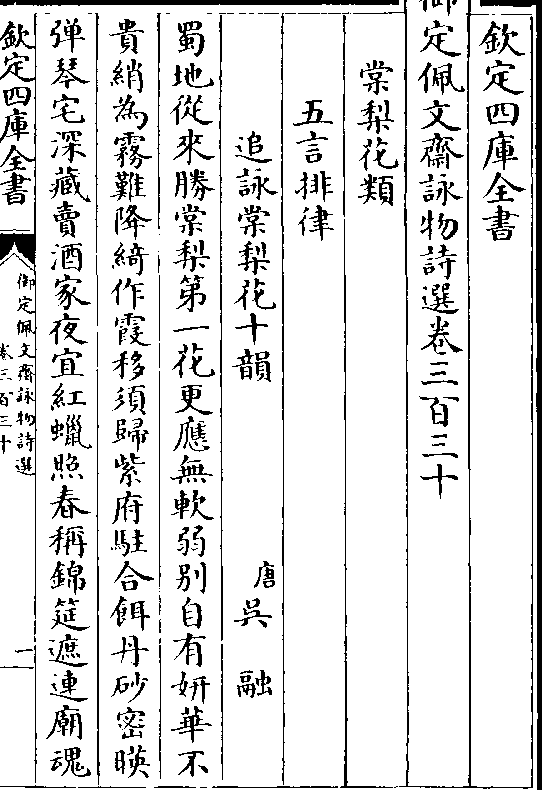 欽定四庫全書
御定佩文齋詠物詩選卷三百三十
棠梨花類
五言排律
追詠棠梨花十韻
唐吳融
蜀地從來勝棠梨第一花更應無軟弱别自有妍華不
貴綃為霧難降綺作霞移須歸紫府駐合餌丹砂密暎
彈琴宅深藏賣酒家夜宜紅蠟照春稱錦筵遮連廟魂
欽定四庫全書
御定佩文齋詠物詩選
卷三百三十
一